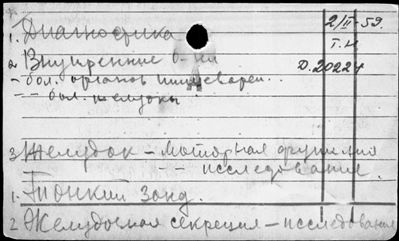 1. Диагностика
2/II-59.
Т.Н
2. Внутренние б-ни
Д.20224
- бол. органов пищеварен..
- - бол. желудка
3. Желудок - моторная функция
- - исследования.
1. Тонкий зонд.
2 Желудочная секреция - исследования